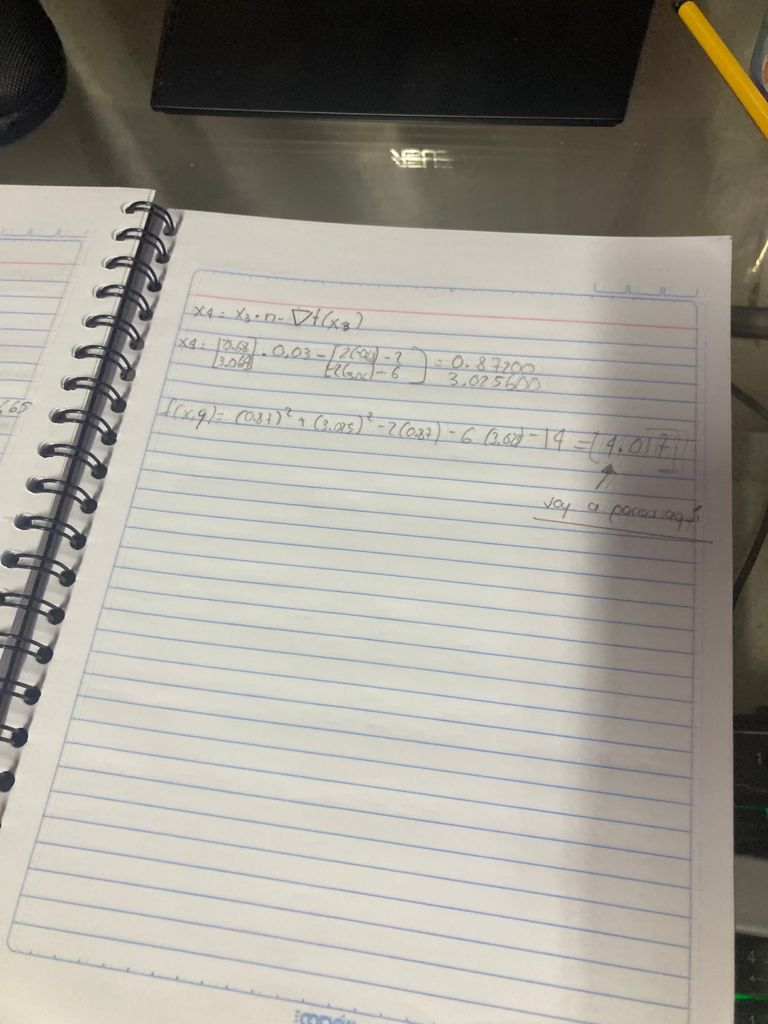 x4 = x3 · n - ∇f(x3)
x4 = [0.68 3.064] · 0.03 - [2( ) - 2 2( ) - 6] = 0.87200 3.025600
f(x,y) = (0.87)² + (3.025)² - 2(0.87) - 6 (3.02) - 14 = (4.017)
voy a parar aquí
665